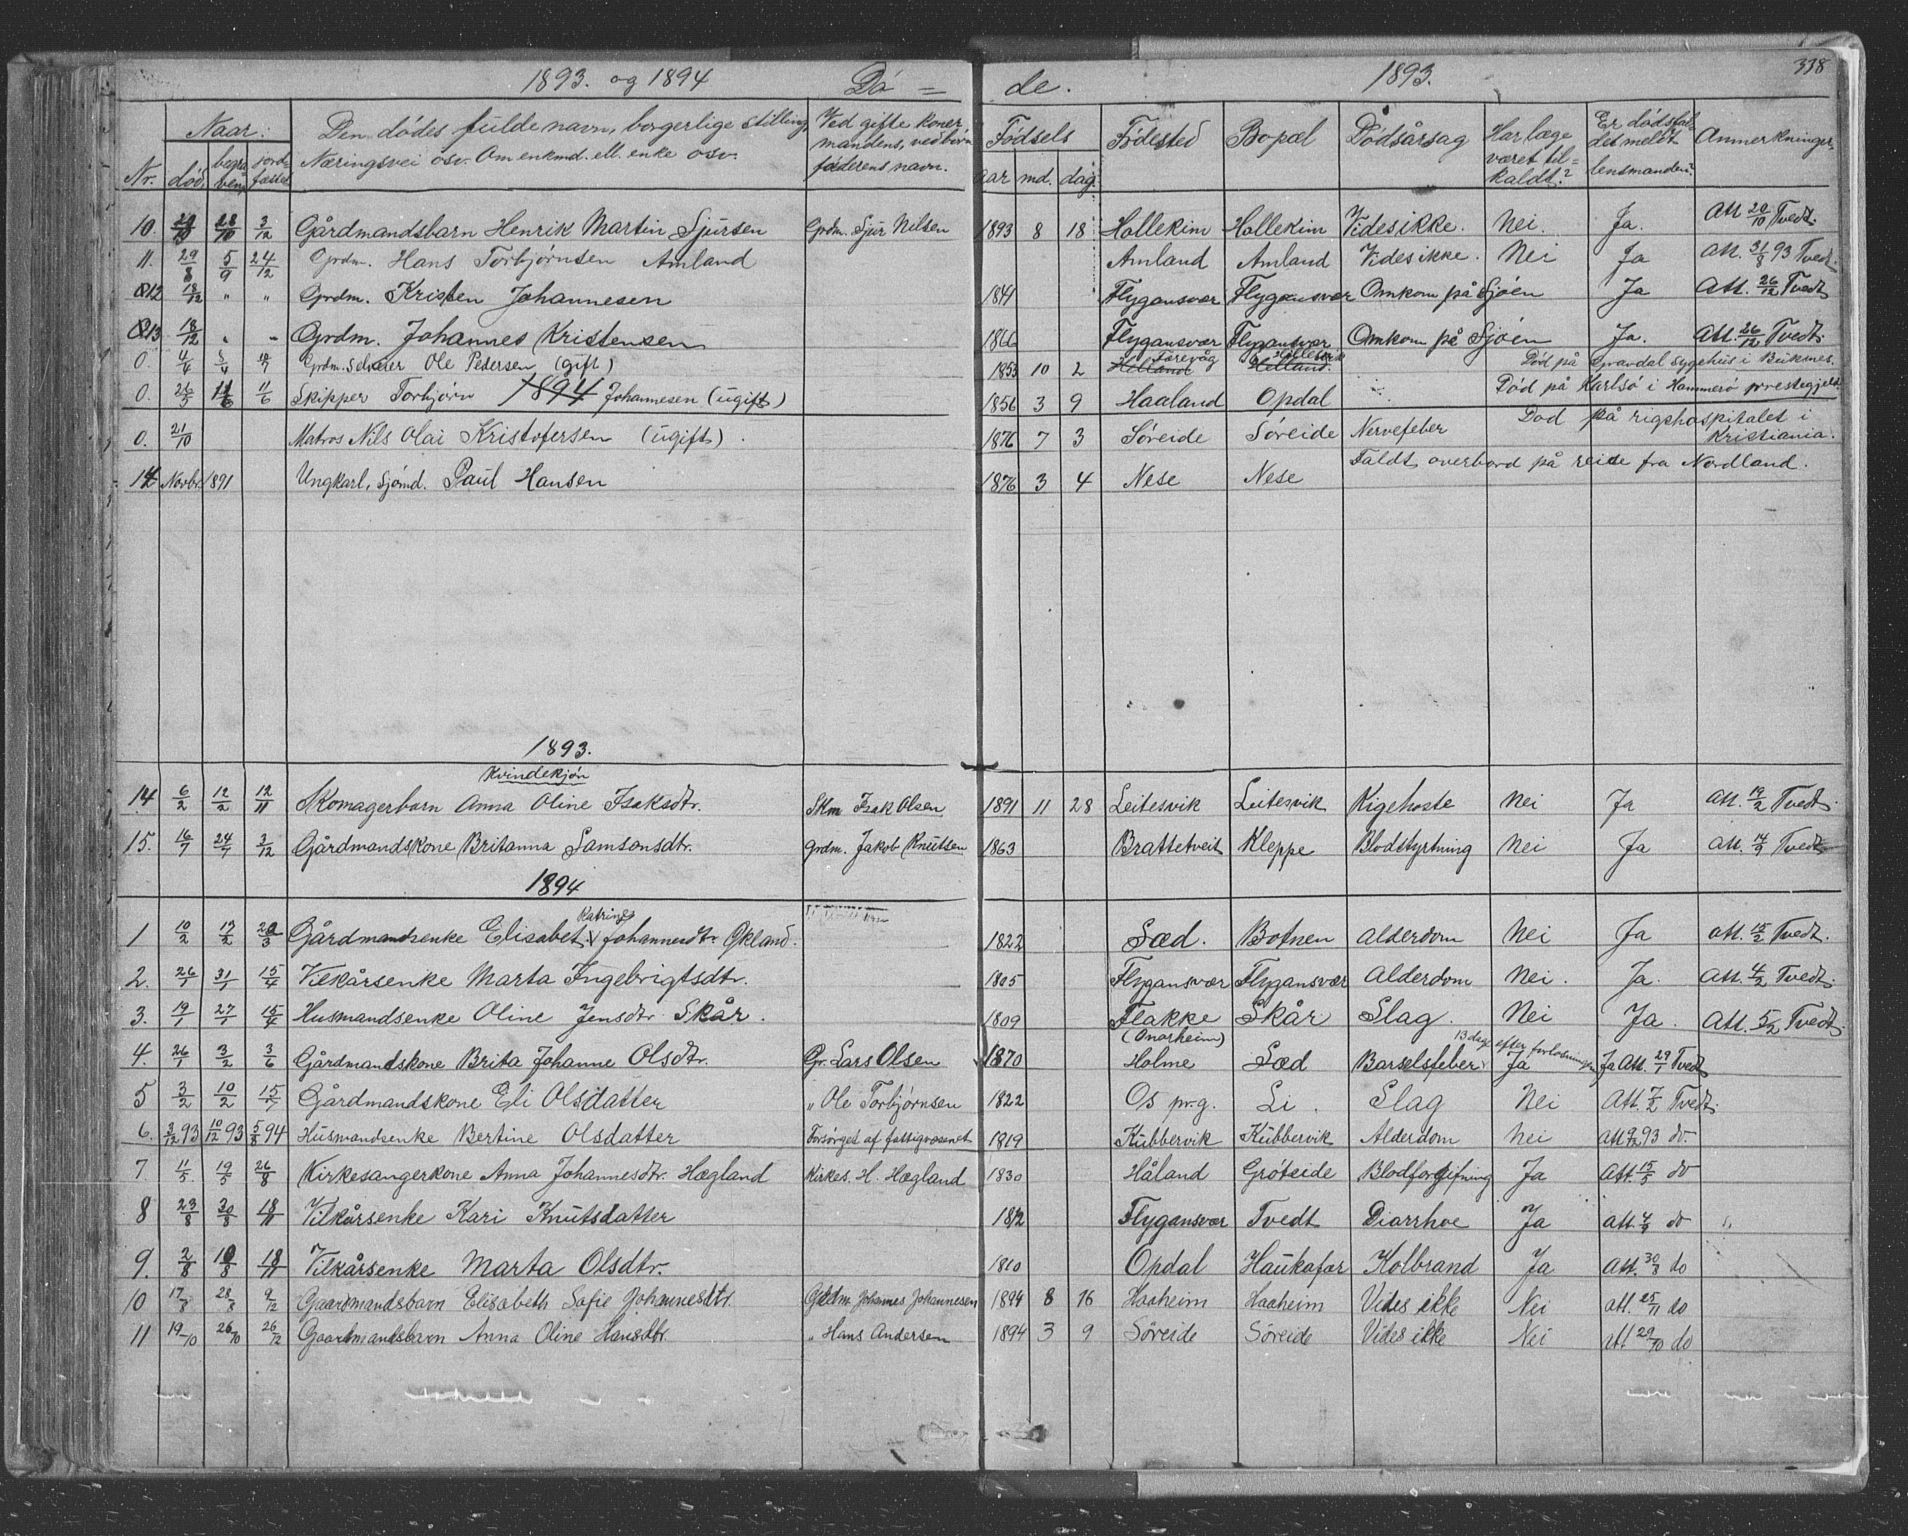 1893. og 1894 Dö = de. 1893. 338
Nr. Naar: död, begra ven, jord fæstet Den dödes fulde navn, borgerlige stilling, Næringsvei osv. Om enkmd. ell. enke osv. Ved gifte koner mandens, ved börn faderens navn. Födsels aar md. dag. Födested Bopæl Dödsårsag Har læge været til= kaldt? Er dödsfal- det meldt lensmanden? Anmerkninger.
10. 28/10 3/12 Gårdmandsbarn Henrik Martin Sjursen Grdm. Sjur Nilsen 1893 8 18 Hollekim Hollekim Vides ikke. Nei. Ja. Att 20/10 Tvedt.
11. 29/8 5/9 24/12 Grdm. Hans Torbjørnsen Amland Amland Amland Vides ikke. Nei Ja Att. 31/8 93 Tvedt.
12 18/12 " " Grdm. Kristen Johannesen 1841 Flygansvær Flygansvær Omkom på Sjöen Ja Att. 26/12 Tvedt
13. 18/12 " " Grdm. Johannes Kristensen 1866 Flygansvær Flygansvær Omkom på Sjöen Ja. Att. 26/12 Tvedt
0. 4/4 Grdm. Ole Pedersen (gift) 1853 10 2 Helland Færevåg Helland. Död på Gravdal sygehus i Buknes.
0. 26/5 11/6 Skipper Torbjørn 1894 Johannesen (ugift) 1856 3 9 Haaland Opdal Död på Karlsö i Hammerö prestegjeld.
0. 21/10 Matros Nils Olai Kristofersen (ugift). 1876 7 3 Söreide Söreide Nervefeber Död på rigshospitalet i Kristiania.
14 Novbr. 1891 Ungkarl, Sjömd. Paul Hansen 1876 3 4 Nese Nese Faldt overbord på reise fra Nordland.
1893.
Kvindekjön
14. 6/2 12/2 12/11 Skomagerbarn Anna Oline Isaksdtr. Skm Isak Olsen 1891 11 28 Leitesvik Leitesvik Kigehoste Nei Ja Att. 14/2 Tvedt.
15. 16/7 24/7 3/12 Gårdmandskone Britanna Samsonsdtr. Grdm. Jakob Knutsen 1863 Brattetveit Kleppe Blodstyrtning Nei Ja Att. 14/9 Tvedt
1894
1 10/2 17/2 Gårdmandsenke Elisabet Katrine Johannesdtr. Økland. 1822 Sæd. Botnen Alderdom Nei Ja Att. 15/2 Tvedt.
2. 26/1 31/1 15/4 Vilkårsenke Marta Ingebrigtsdtr. 1805 Flygansvær Flygansvær Alderdom Nei. Ja. Att. 4/2 Tvedt.
3. 19/1 27/1 15/4 Husmandsenke Oline Jensdtr Skår. 1809 Flakke (Onarheim) Skår Slag. Nei Ja. Att. 5/2 Tvedt
4. 26/1 3/2 3/6 Gårdmandskone Brita Johanne Olsdtr. Gr. Lars Olsen 1870 Holme Sæd Barselfeber 13 dage efter forløsningen Ja Ja Att. 29/1 Tvedt
5 3/2 10/2 15/7 Gårdmandskone Eli Olsdatter " Ole Torbjørnsen 1822 Os pr.g. Li. Slag Nei Att. 7/2 Tvedt.
6. 3/12 93 10/12 93 5/8 94 Husmandsenke Bertine Olsdatter Forsörget af fattigvæsenet 1819 Kubbervik Kubbervik Alderdom Nei Att 9/12 93 do.
7. 11/5 19/5 26/8 Kirkesangerkone Anna Johannesdtr. Hægland Kirkes. H. Hægland 1830 Håland Gröteide Blodforgifning Ja Att. 15/5 do
8 23/8 30/8 18/11 Vilkårsenke Kari Knutsdatter 1812 Flygansvær Tvedt Diarrhoe Ja Att. 4/9 do "
9. 2/8 10/8 18/11 Vilkårsenke Marta Olsdtr. 1810 Opdal Haukafær Kolbrand Ja Att. 30/8 do
10 17/8 28/8 9/12 Gaardmandsbarn Elisabeth Sofie Johannesdtr. Grdm. Johannes Johannesen 1894 8 16 Haaheim Haaheim Vides ikke Nei Att. 25/11 do
11 19/10 26/10 26/12 Gaardmandsbarn Anna Oline Hansdtr. " Hans Andersen 1894 3 9 Söreide Söreide Vides ikke Nei Att 29/10 do